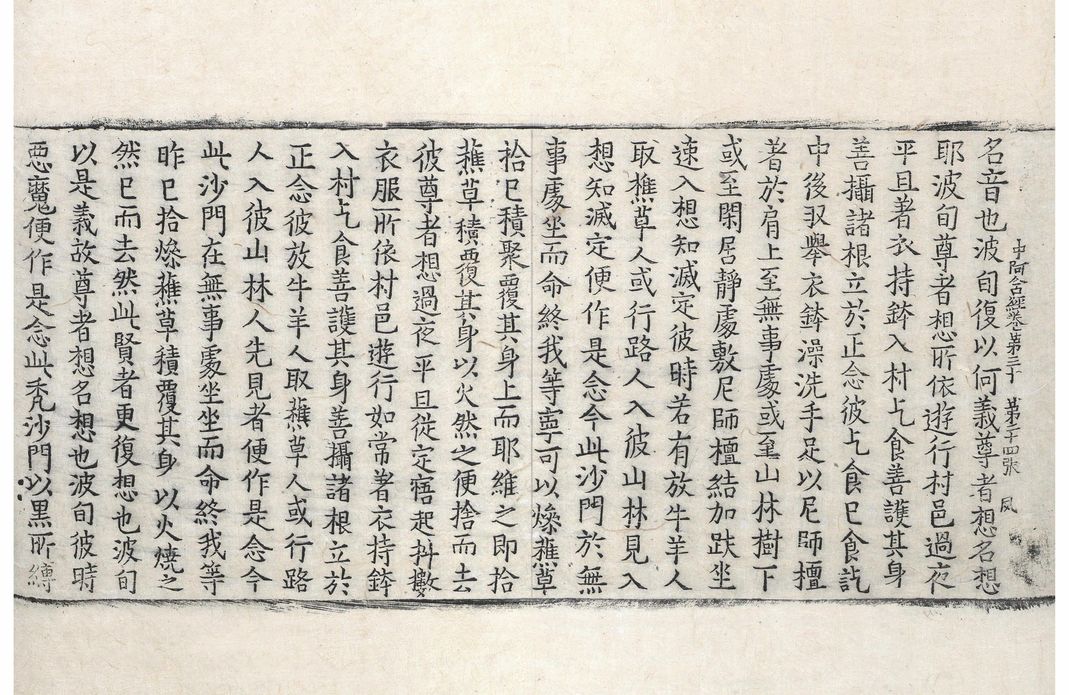 中阿含經卷第三十 第二十四張 夙
名音也波旬復以何義尊者想名想
耶波旬尊者想所依遊行村邑過夜
平旦著衣持鉢入村乞食善護其身
善攝諸根立於正念彼乞食已食訖
中後収舉衣鉢澡洗手足以尼師檀
著於肩上至無事處或至山林樹下
或至閑居靜處敷尼師檀結加趺坐
速入想知滅定彼時若有放牛羊人
取樵草人或行路人入彼山林見入
想知滅定便作是念今此沙門於無
事處坐而命終我等寧可以燥蕉草
拾已積聚覆其身上而耶維之即拾
蕉草積覆其身以火然之便捨而去
彼尊者想過夜平旦從定寤起抖擻
衣服所依村邑遊行如常著衣持鉢
入村乞食善護其身善攝諸根立於
正念彼放牛羊人取蕉草人或行路
人入彼山林人先見者便作是念今
此沙門在無事處坐坐而命終我等
昨已拾燥蕉草積覆其身以火燒之
然已而去然此賢者更復想也波旬
以是義故尊者想名想也波旬彼時
惡魔便作是念此禿沙門以黑所縛